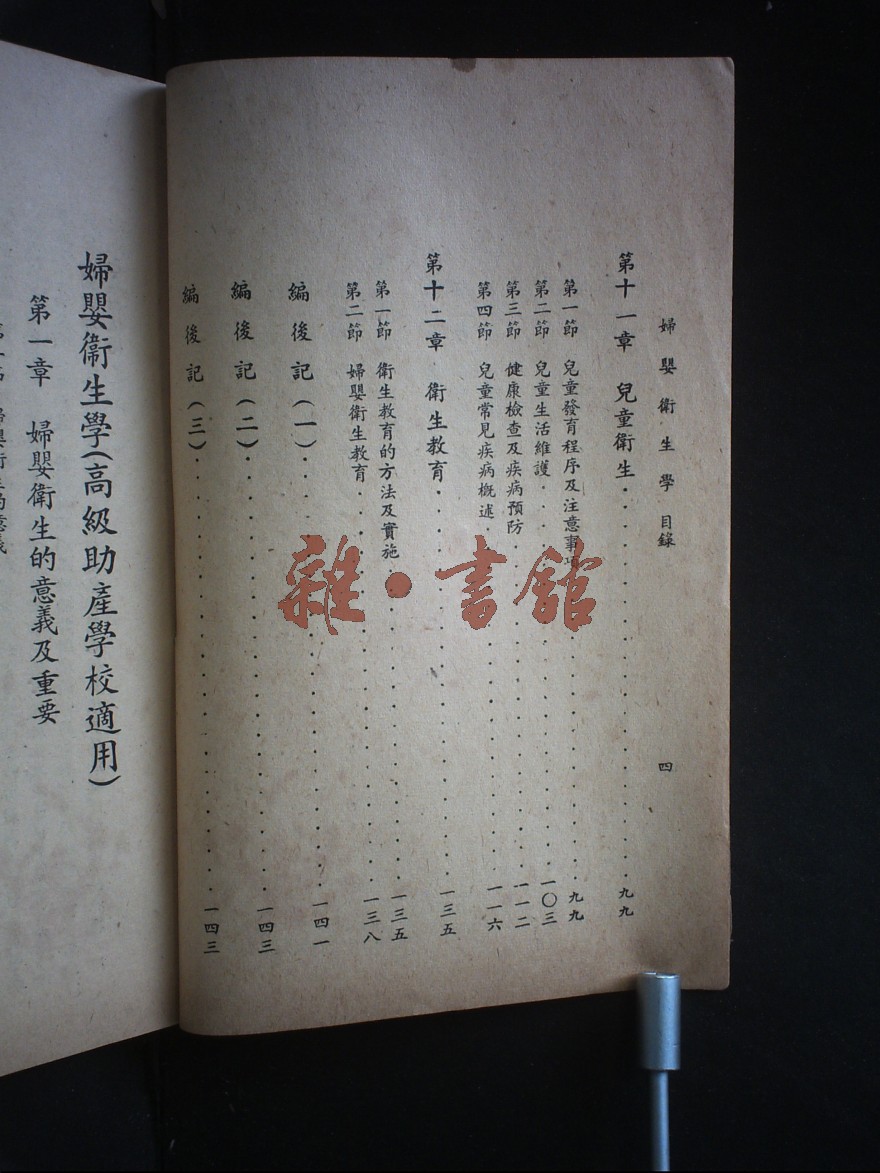 婦嬰衛生學 目錄 四
第十一章 兒童衛生 九九
第一節 兒童發育程序及注意事項 九九
第二節 兒童生活維護 一〇三
第三節 健康檢查及疾病預防 一一二
第四節 兒童常見疾病概述 一一六
第十二章 衛生教育 一三五
第一節 衛生教育的方法及實施 一三五
第二節 婦嬰衛生教育 一三八
編後記(一) 一四一
編後記(二) 一四三
編後記(三) 一四三
婦嬰衛生學(高級助產學校適用)
第一章 婦嬰衛生的意義及重要
雜·書館